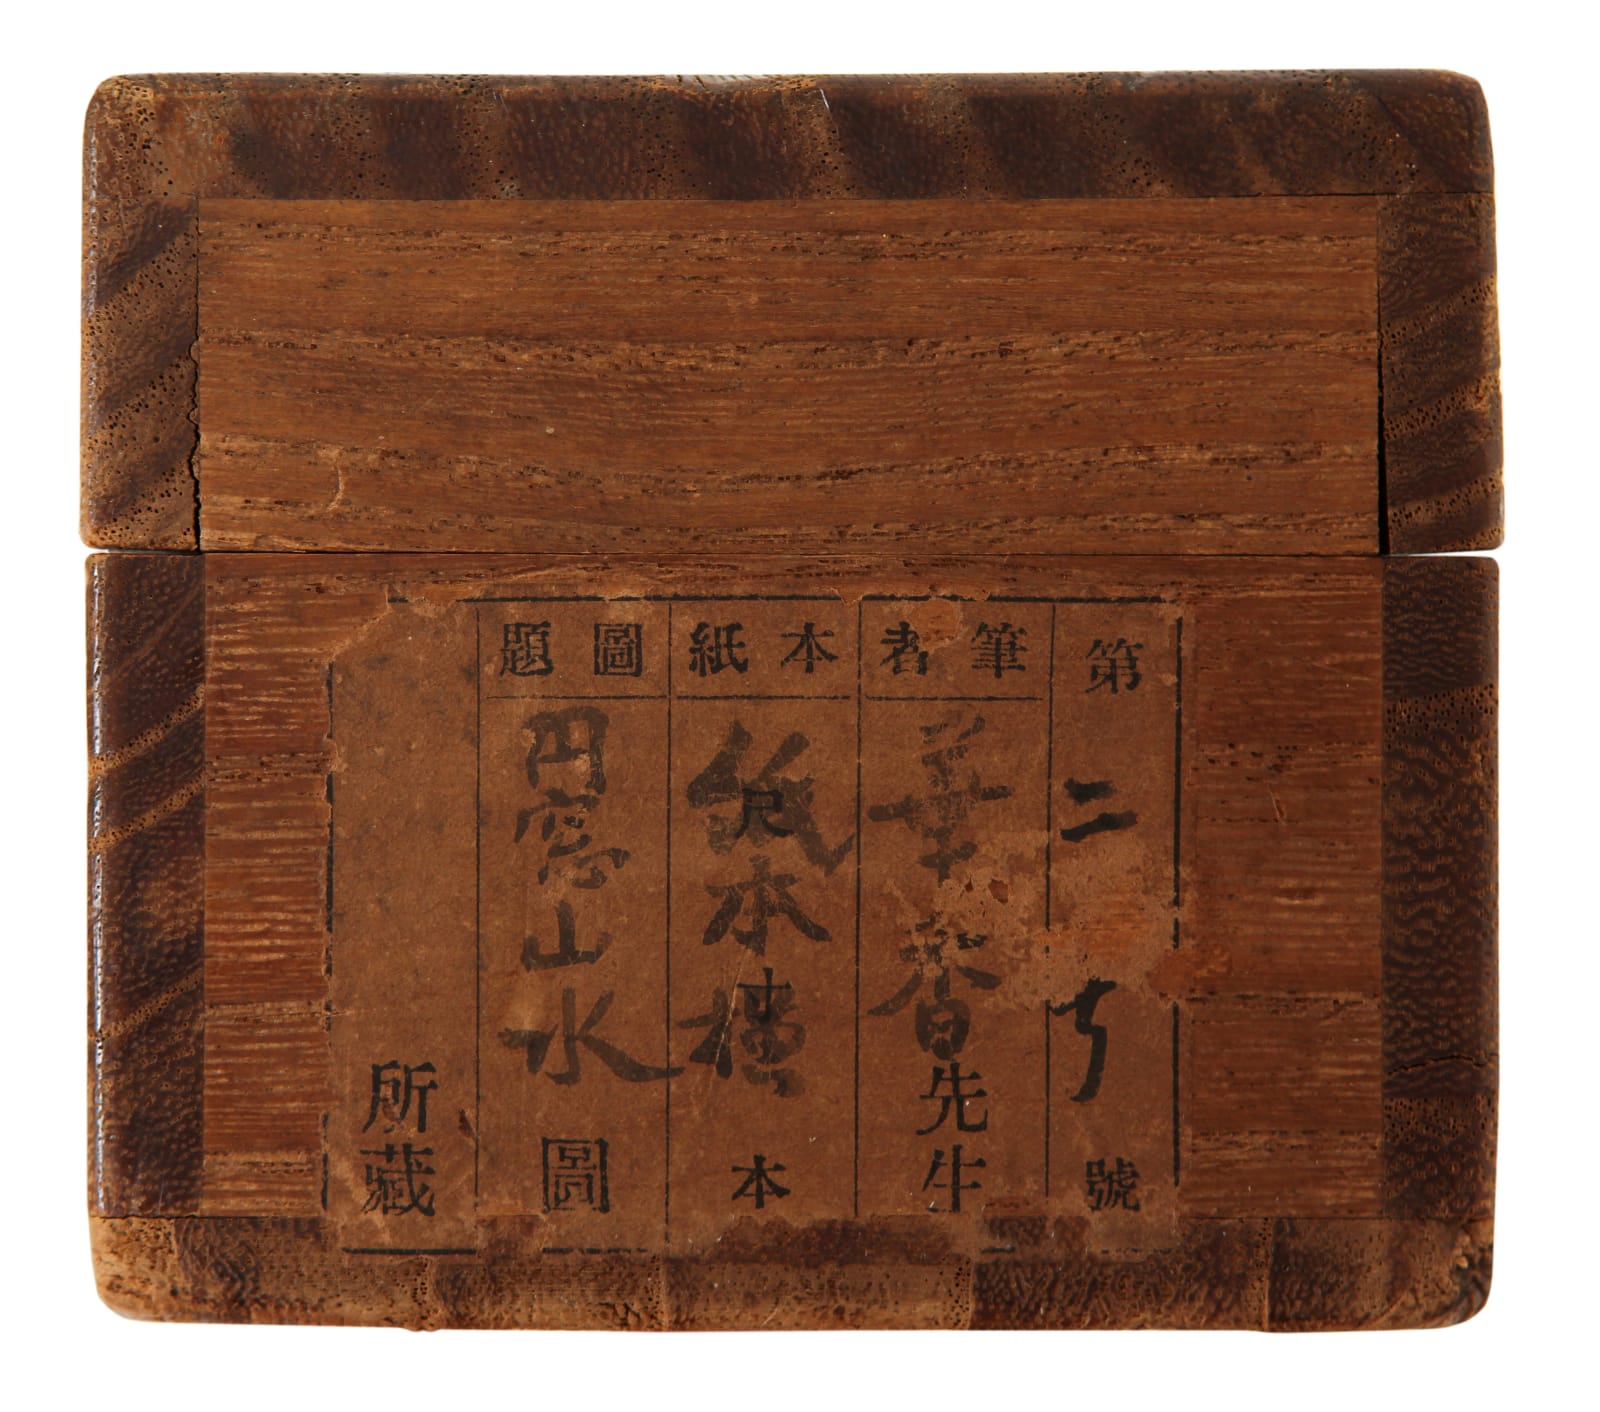 第二号號
筆者
華香先生
本紙
紙本横
尺
寸
本
圖題
円窓山水圖
所藏